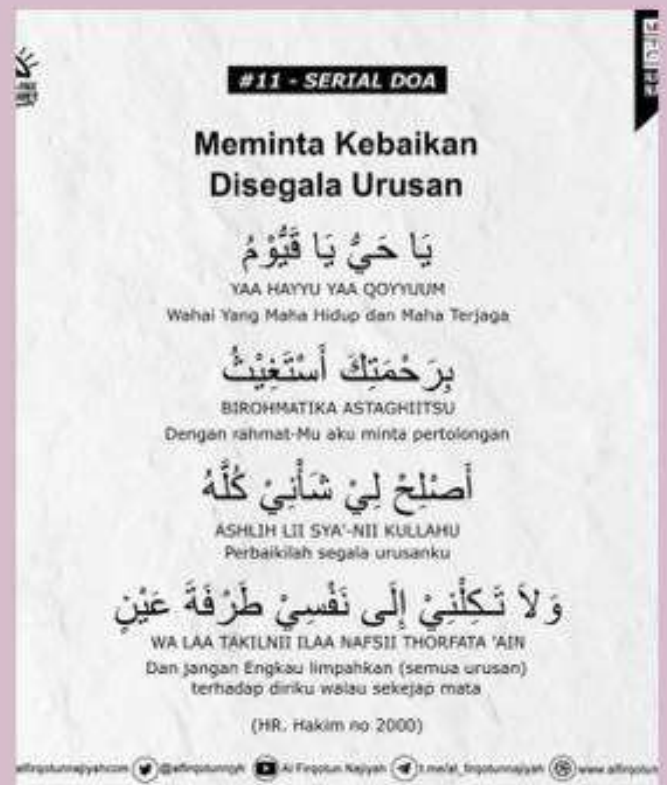 #11 - SERIAL DOA
Meminta Kebaikan
Disegala Urusan
يَا حَيُّ يَا قَيُّوْمُ
YAA HAYYU YAA QOYYUUM
Wahai Yang Maha Hidup dan Maha Terjaga
بِرَحْمَتِكَ أَسْتَغِيْثُ
BIROHMATIKA ASTAGHIITSU
Dengan rahmat-Mu aku minta pertolongan
أَصْلِحْ لِيْ شَأْنِيْ كُلَّهُ
ASHLIH LII SYA'-NII KULLAHU
Perbaikilah segala urusanku
وَلاَ تَكِلْنِيْ إِلَى نَفْسِيْ طَرْفَةَ عَيْنٍ
WA LAA TAKILNII ILAA NAFSII THORFATA 'AIN
Dan jangan Engkau limpahkan (semua urusan)
terhadap diriku walau sekejap mata
(HR. Hakim no 2000)
Al Firqotun Najiyah t.me/al_firqotunnajiyah